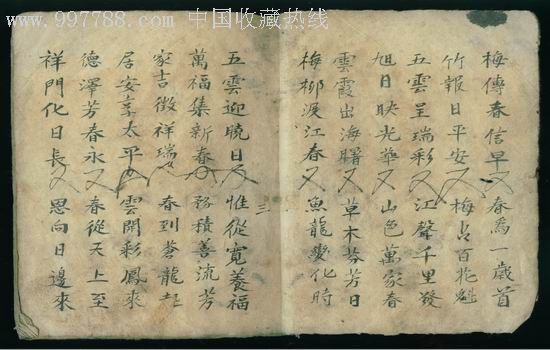 www.997788.com 中国收藏热线
梅傳春信早又春為一歲首
竹報日平安又梅占百花魁
五雲呈瑞彩又江聲千里發
旭日映光華又山色萬家春
雲霞出海曙又草木芬芳日
梅柳渡江春又魚龍變化時
三
五雲迎曉日又惟從寬養福
萬福集新春又務積善流芳
家吉徵祥瑞又春到蒼龍起
居安享太平又雲開彩鳳來
德澤芳春永又春從天上至
祥門化日長又恩向日邊來